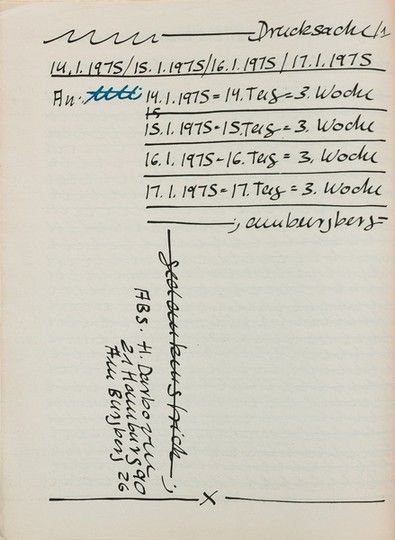 Drucksache/1
14.1.1975/15.1.1975/16.1.1975/17.1.1975
An:
14.1.1975=14.Tag=3.Woche
15
15.1.1975=15.Tag=3.Woche
16.1.1975=16.Tag=3.Woche
17.1.1975=17.Tag=3.Woche
;amburgberg=
gedankenstrich;
ABS. H. Darboven
21 Hamburg 90
Am Burgberg 26
x